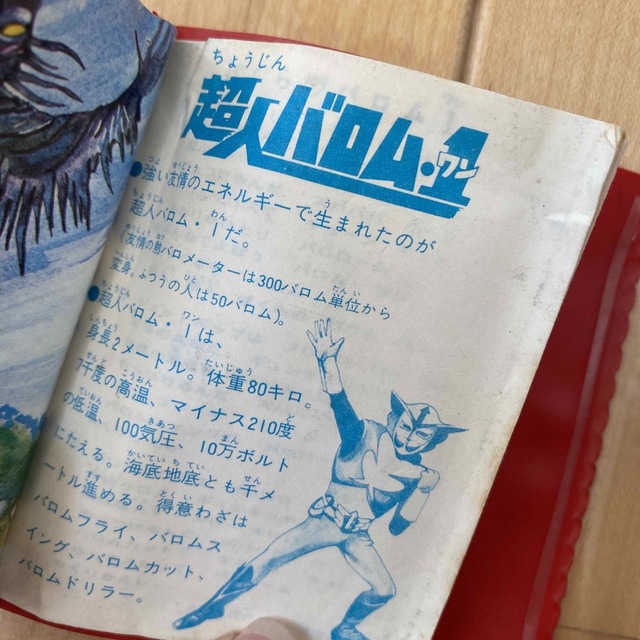 ちょうじん
超人バロム・1
ワン
●強い友情のエネルギーで生まれたのが
超人バロム・1だ。
(友情の熱バロメーターは300バロム単位から
変身。ふつうの人は50バロム)。
●超人バロム・1は、
身長2メートル。体重80キロ。
7千度の高温、マイナス210度
の低温、100気圧、10万ボルト
にたえる。海底地底とも千メ
ートル進める。得意わざは
バロムフライ、バロムス
イング、バロムカット、
バロムドリラー。